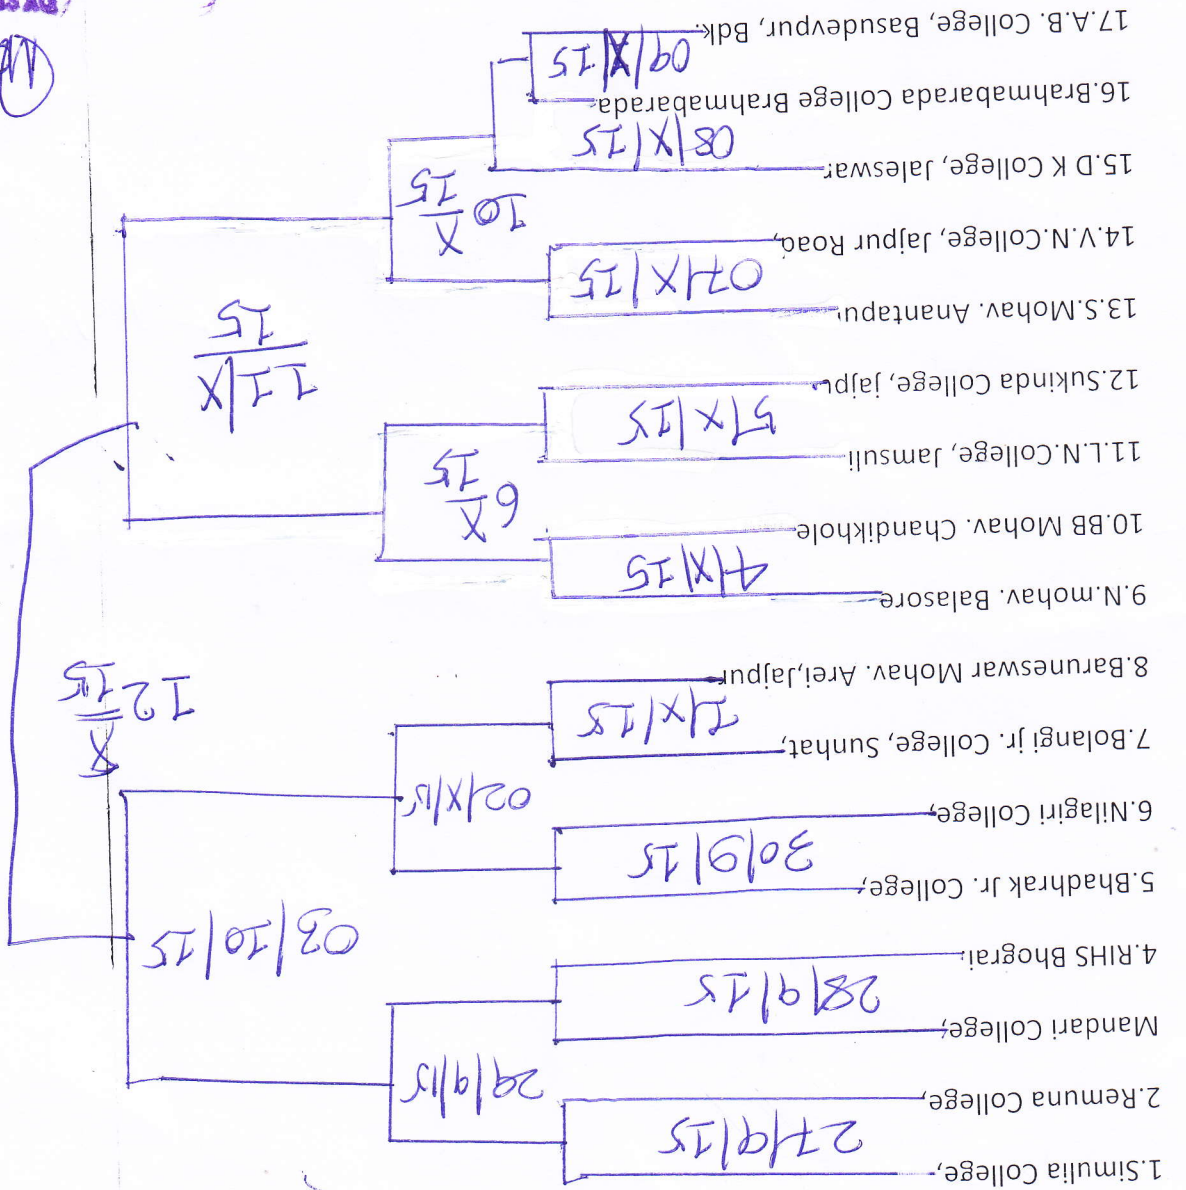 1.Simulia College,
27/9/15
2.Remuna College,
29/9/15
Mandari College,
28/9/15
4.RIHS Bhograi
03/10/15
5.Bhadhrak Jr. College,
30/9/15
6.Nilagiri College,
02/X/15
7.Bolangi jr. College, Sunhat,
1/X/15
8.Baruneswar Mohav. Arei,Jajpur
12 X 15
9.N.mohav. Balasore
4/X/15
10.BB Mohav. Chandikhole
6 X 15
11.L.N.College, Jamsuli
5/X/15
12.Sukinda College, jajpu
11/X 15
13.S.Mohav. Anantapu
07/X/15
14.V.N.College, Jajpur Road,
10 X 15
15.D K College, Jaleswar
08/X/15
16.Brahmabarada College Brahmabarada
09/X/15
17.A.B. College, Basudevpur, Bdk.